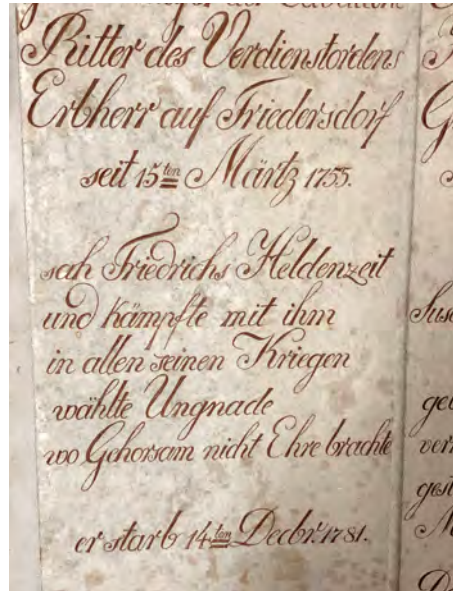 der
Ritter des Verdienstordens
Erbherr auf Friedersdorf
seit 15ten Märtz 1755.
sah Friedrichs Heldenzeit
und kämpfte mit ihm
in allen seinen Kriegen
wählte Ungnade
wo Gehorsam nicht Ehre brachte
er starb 14ten Decbr. 1781.